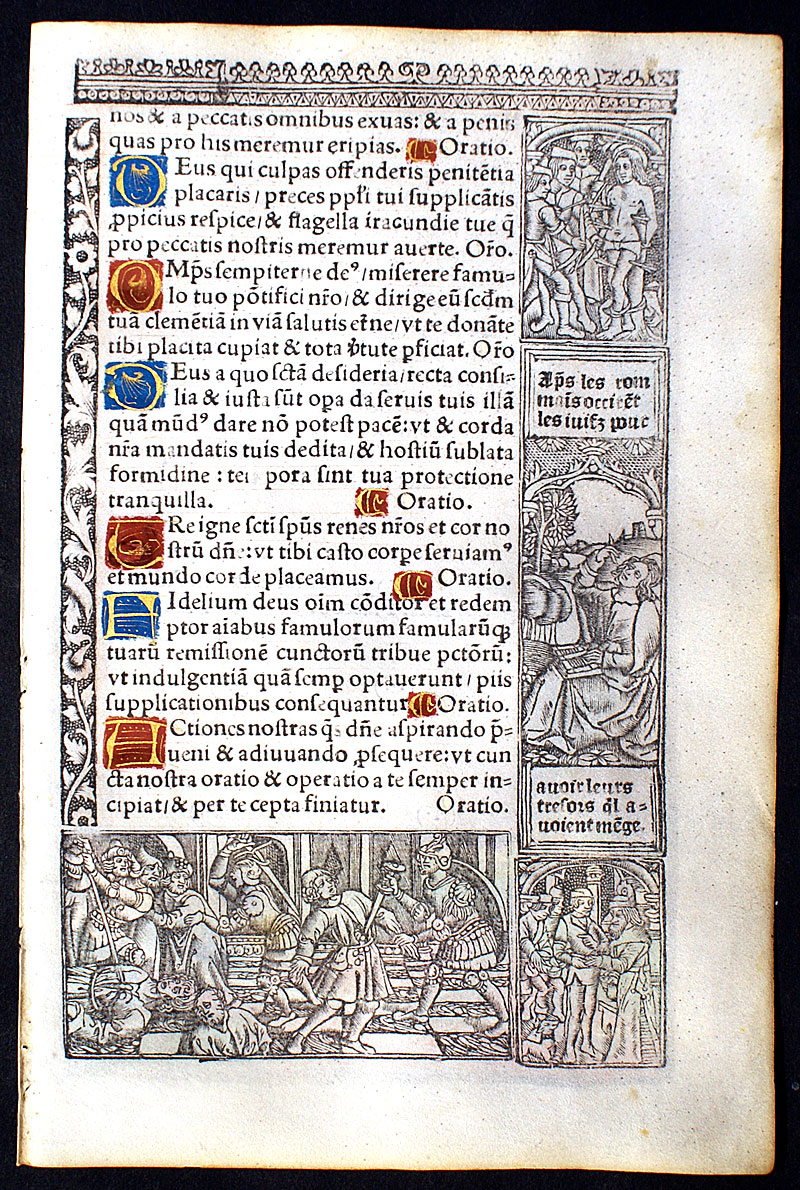 nos & a peccatis omnibus exuas: & a penis
quas pro his meremur eripias. Oratio.
DEus qui culpas offenderis penitētia
placaris / preces pp̄li tui supplicātis
ꝓpicius respice / & flagella iracundie tue q̄
pro peccatis nostris meremur auerte. Or̄o.
OMp̄s sempiterne deꝰ / miserere famu-
lo tuo pōtifici nr̄o / & dirige eū scd̄m
tuā clemētiā in viā salutis et̄ne / vt te donāte
tibi placita cupiat & tota v̄tute ꝑficiat. Or̄o
DEus a quo sctā desideria / recta consi-
lia & iusta sūt opa da seruis tuis illā
quā mūdꝰ dare nō potest pacē: vt & corda
nr̄a mandatis tuis dedita / & hostiū sublata
formidine : tempora sint tua protectione
tranquilla. Oratio.
URe igne scti sp̄us renes nr̄os et cor no
strū dn̄e: vt tibi casto corpe seruiamꝰ
et mundo corde placeamus. Oratio.
FIdelium deus oīm cōditor et redem
ptor aīabus famulorum famularūqꝫ
tuarū remissionē cunctorū tribue pctōrū:
vt indulgentiā quā semꝑ optauerunt / piis
supplicationibus consequantur Oratio.
ACtiones nostras q̄s dn̄e aspirando p̄-
ueni & adiuuando ꝓsequere: vt cun
cta nostra oratio & operatio a te semper in-
cipiat / & per te cepta finiatur. Oratio.
Ap̄s les rom
mais occirēt
les iuifz pour
auoir leurs
tresors q̄l a-
uoient mēge.